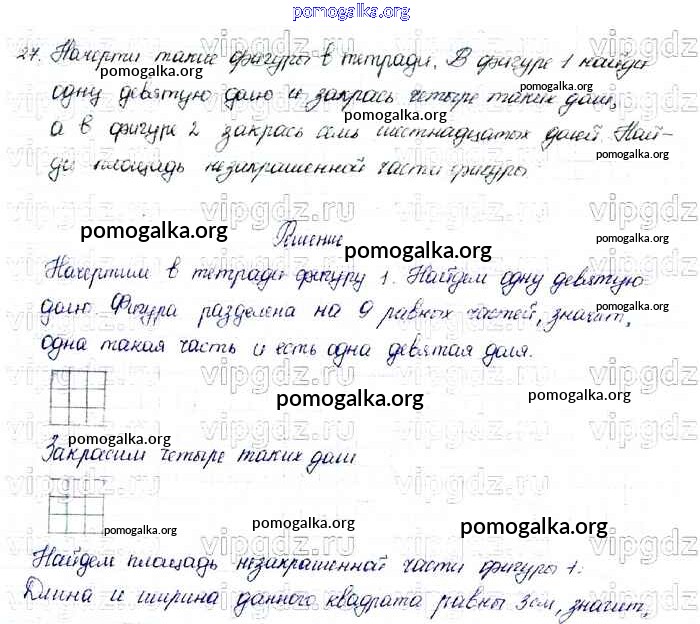 pomogalka.org
27. Начерти такие фигуры в тетради. В фигуре 1 найди
pomogalka.org
pomogalka.org
одну девятую долю и закрась четыре таких доли,
pomogalka.org
а в фигуре 2 закрась семь шестнадцатых долей. Най-
pomogalka.org
pomogalka.org
ди площадь незакрашенной части фигуры
vipgdz.ru vipgdz.ru vipgdz.ru vipgdz
pomogalka.org
Решение
pomogalka.org
pomogalka.org
Начертим в тетради фигуру 1. Найдем одну девятую
долю. Фигура разделена на 9 равных частей, значит,
pomogalka.org
одна такая часть и есть одна девятая доля.
vipgdz.ru vipgdz.ru vipgdz.ru vipgdz
pomogalka.org
pomogalka.org
vipgdz.ru vipgdz.ru vipgdz.ru
pomogalka.org
Закрасим четыре таких доли
pomogalka.org
pomogalka.org
pomogalka.org
Найдем площадь незакрашенной части фигуры 1.
Длина и ширина данного квадрата равны 3см, значит,